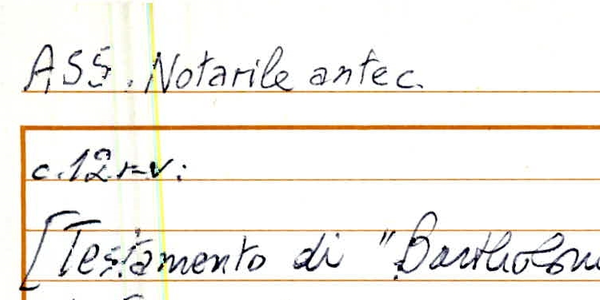 ASS. Notarile antec.
c. 12 r-v:
[Testamento di "Bartholom